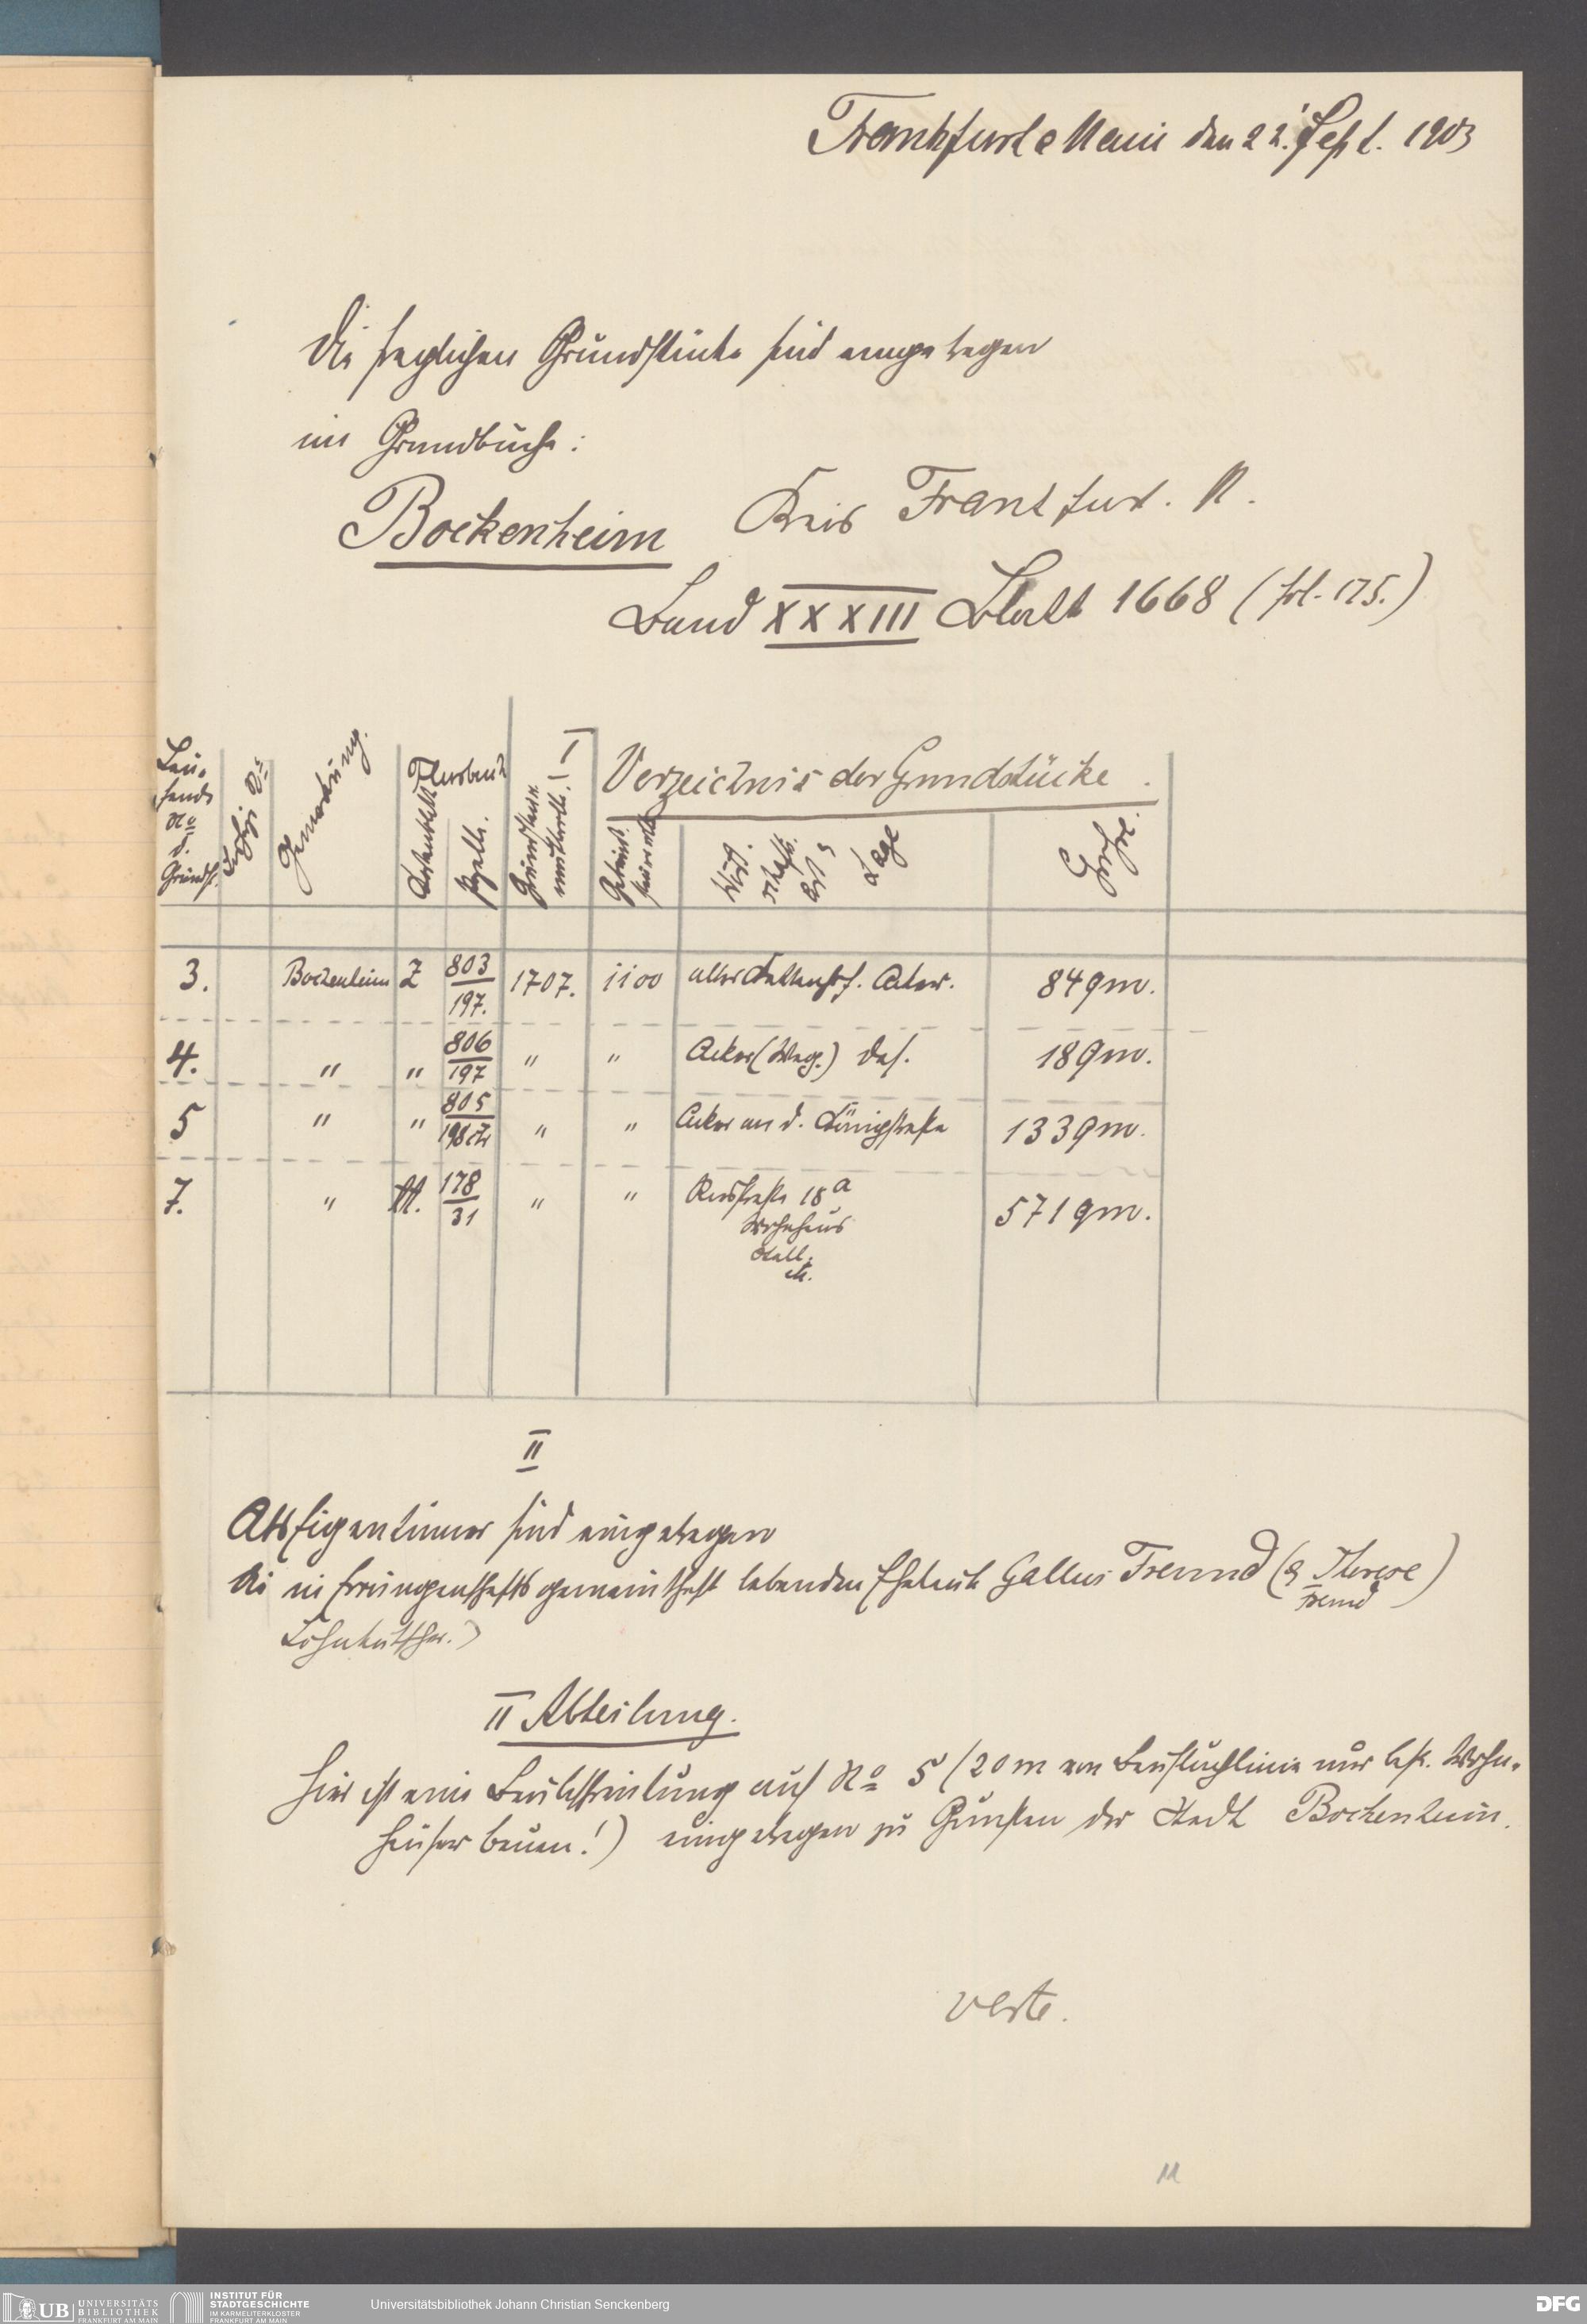 Frankfurt a Main den 22. Sept. 1903
Die fraglichen Grundstücke sind eingetragen
im Grundbuche:
Bockenheim Kreis Frankfurt. M.
Band XXXIII Blatt 1668 (fol. 175.)
I
Verzeichnis der Grundstücke.
Lau-
fende
No
d.
Grundst.
Gemarkung.
Flurbuch
Kartenblatt
Parzelle.
Grundsteuer
mutterrolle.
Gebäude
steuerrolle
Wirt.
schafts.
art u
Lage
Größe.
3. Bockenheim Z 803/197. 1707. 1100 Acker. 84 qm.
4. " " 806/197 " " Acker (Weg.) das. 18 qm.
5 " " 805/198 " " Acker an d. Königstraße 133 qm.
7. " M. 178/31 " " 18a 571 qm.
Wohnhaus
Stall.
etc.
II
Als Eigentümer sind eingetragen
die in Errungenschaftsgemeinschaft lebenden Eheleute Gallus Freund (& Therese
Freund)
Lohnkutscher.)
II Abteilung.
Hier ist eine Baubeschränkung auf No 5 (20 m von Baufluchtlinie nur Wohn-
häuser bauen!) eingetragen zu Gunsten der Stadt Bockenheim.
verte.
11
UB UNIVERSITÄTS
BIBLIOTHEK
FRANKFURT AM MAIN
INSTITUT FÜR
STADTGESCHICHTE
IM KARMELITERKLOSTER
FRANKFURT AM MAIN
Universitätsbibliothek Johann Christian Senckenberg
DFG